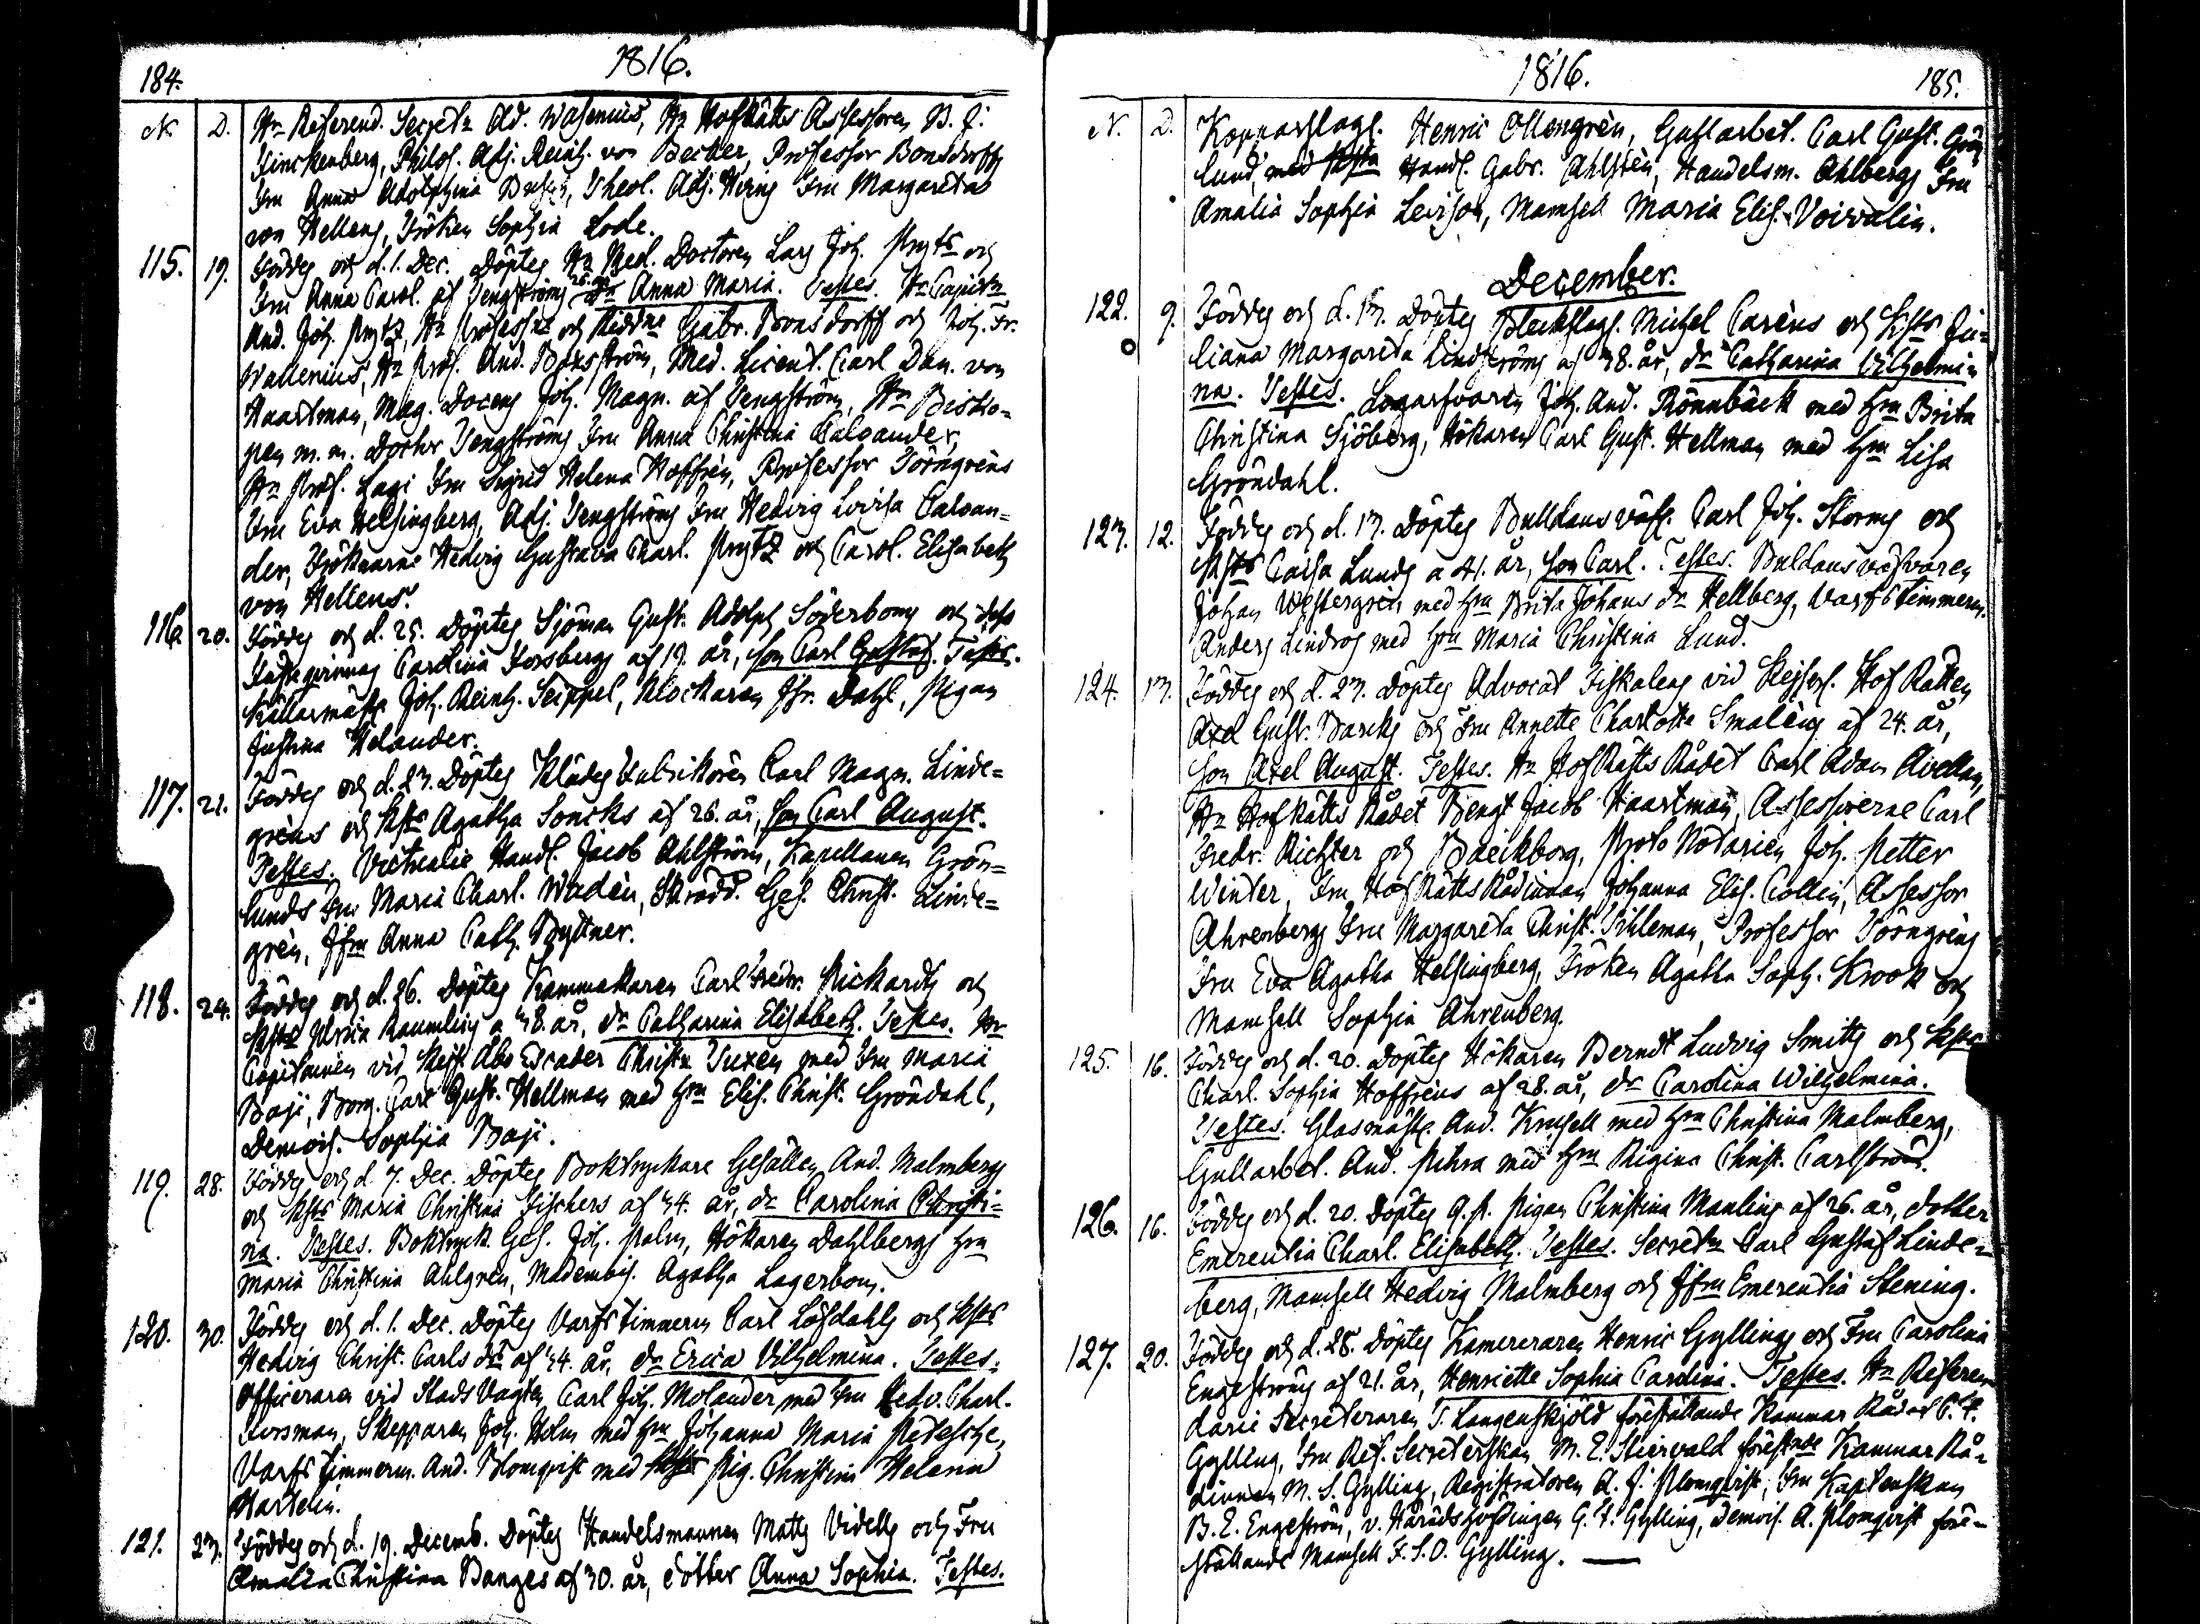 184.
1816.
N. D. Hr Referend. Secret. Ad. Wasenius, Hr HofRätts Assessoren B. J.
Finckenberg, Philos. Adj. Reinh. von Becker, Professor Bonsdorffs
Fru Anna Adolphina, Theol. Adj. Fru Margareta
von Hellens, Fröken Sophia Lode.
115. 19. Föddes och d. 1. Dec. Döptes Hr Med. Doctoren Lars Joh. Prytz och
Fru Anna Carol. af Tengströms dr Anna Maria. Testes. Hr
And. Joh. Prytz, Hr Professor och Ridd. Gabr. Bonsdorff och Joh. Fr.
Wallenius, Hr Prof. And. Boxström, Med. Licent. Carl Dan. von
Haartman, Mag. Docens Joh. Magn. af Tengström, Hr Bisko=
pen m. m. Doctor Tengströms Fru Anna Christina Caloander,
Hr Prof. Fru Sigrid Helena Hoffrén, Professor Törngréns
Fru Eva Helsingberg, Adj. Tengströms Fru Hedvig Lovisa Caloan=
der, Fröknarne Hedvig Gustava Charl. Prytz och Carol. Elisabeth
von Hellens.
116. 20. Föddes och d. 25. Döptes Sjöman Gust. Adolph Söderbom och dess
Carolina Forsbergs af 19. år, son Carl Gustaf. Testes.
Källarmäst. Joh. Reinh. Seippel, Klockaren Dahl, Pigan
Justina Helander.
117. 21. Föddes och d. 23. Döptes Klädes Fabrikören Carl Magn. Linde=
gréns och Agatha Soncks af 26. år, son Carl August.
Testes. Victualie Handl. Jacob Ahlström, Kapellanen Grön=
lunds Fru Maria Charl. Wadén, Skrädd. Ges. Christ. Linde=
grén, Anna Cath. Byttner.
118. 24. Föddes och d. 26. Döptes Kammakaren Carl Fredr. Rickards och
Ulrica a 38. år, dr Catharina Elisabeth. Testes. Hr
Capitainen vid Kejs. Åbo Escader Christ. Tuxen med Fru Maria
Baji, Borg. Carl Gust. Hellman med Hru Elis. Christ. Gröndahl,
Demois. Sophia Baji.
119. 28. Föddes och d. 7. Dec. Döptes Boktryckare Gesällen And. Malmbergs
och Maria Christina Fischers af 34. år, dr Carolina Christi=
na. Testes. Boktryck. Ges. Joh. Malm, Hökaren Dahlbergs Hru
Maria Christina Ahlgren, Mademois. Agatha Lagerbom.
120. 30. Föddes och d. 1. Dec. Döptes Varfs Timmerm. Carl Löfdahls och
Hedvig Christ. Carls dr af 34. år, dr Erica Vilhelmina. Testes.
Officeraren vid Stads Vagten Carl Joh. Molander med Fru Hedv. Charl.
Forsman, Skepparen Joh. Holm med Hru Johanna Maria
Varfs Timmerm. And. Blomqvist med Pig. Christina Helena
Hartelin.
121. 23. Föddes och d. 19. Decemb. Döptes Handelsmannen Matts Vidells och Fru
Amalia Christina Banges af 30. år, dotter Anna Sophia. Testes.
1816.
185.
N. D. Kopparslag. Henric Ollongrén, Gullarbet. Carl Gust. Grön
lund, Handl. Gabr. Ahlstén, Handelsm. Ahlbergs Fru
Amalia Sophia Levison, Mamsell Maria Elis. Voivalin.
December.
122. 9. Föddes och d. 13. Döptes Bleckslag. Michel Caréns och Ju=
liana Margareta Lindströms af 38. år, dr Catharina Vilhelmi=
na. Testes. Logarfvaren Joh. And. Rönnbäck med Hru Brita
Christina Sjöberg, Hökaren Carl Gust. Hellman med Hru Lisa
Gröndahl.
123. 12. Föddes och d. 13. Döptes Bulldansväf. Carl Joh. Storms och
Caisa Lunds a 41. år, son Carl. Testes. Buldansväfvaren
Johan Westergrén med Hru Brita Johans dr Hellberg, Varfs Timmerm.
Anders Lindroos med Hru Maria Christina Lund.
124. 13. Föddes och d. 23. Döptes Advocat Fiskalens vid Kejserl. Hof Rätten
Axel Gust. Barcks och Fru Annette Charlotta Smaléns af 24. år,
son Axel August. Testes. Hr HofRätts Rådet Carl Adam Avellan,
Hr HofRätts Rådet Bengt Jacob Haartman, Assessorerne Carl
Fredr. Richter och Baeckborg, Proto Notarien Joh. Petter
Winter, Fru HofRätts Rådinnan Johanna Elis. Collin, Assessor
Ahrenbergs Fru Margareta Christ. Tihleman, Professor Törngréns
Fru Eva Agatha Helsingberg, Fröken Agatha Soph. Krook och
Mamsell Sophia Ahrenberg.
125. 16. Föddes och d. 20. Döptes Hökaren Berndt Ludvig Smitts och
Charl. Sophia Hoffréns af 28. år, dr Carolina Wilhelmina.
Testes. Glasmäst. And. Krusell med Hru Christina Malmberg,
Gullarbet. And. med Hru Regina Christ. Carlström.
126. 16. Föddes och d. 20. Döptes Q. P. Pigan Christina Manlins af 26. år, dotter
Emerentia Charl. Elisabeth. Testes. Secret. Carl Gustaf Linde=
berg, Mamsell Hedvig Malmberg och Emerentia Stening.
127. 20. Föddes och d. 28. Döptes Kamereraren Henric Gyllings och Fru Carolina
Engeströms af 21. år, Henriette Sophia Carolina. Testes. Hr Referen
darie Secreteraren T. Langenskjöld föreställande Kammar Rådet C. F.
Gylling, Fru Ref. Secreterskan M. E. Stiervald förest. Kammar Rå=
dinnan M. S. Gylling, Registratoren A. J. Plomqvist, Fru Kaptenskan
B. E. Engeström, v. Häradshöfdingen G. F. Gylling, Demois. A. Plomqvist före=
ställande Mamsell F. S. O. Gylling. —